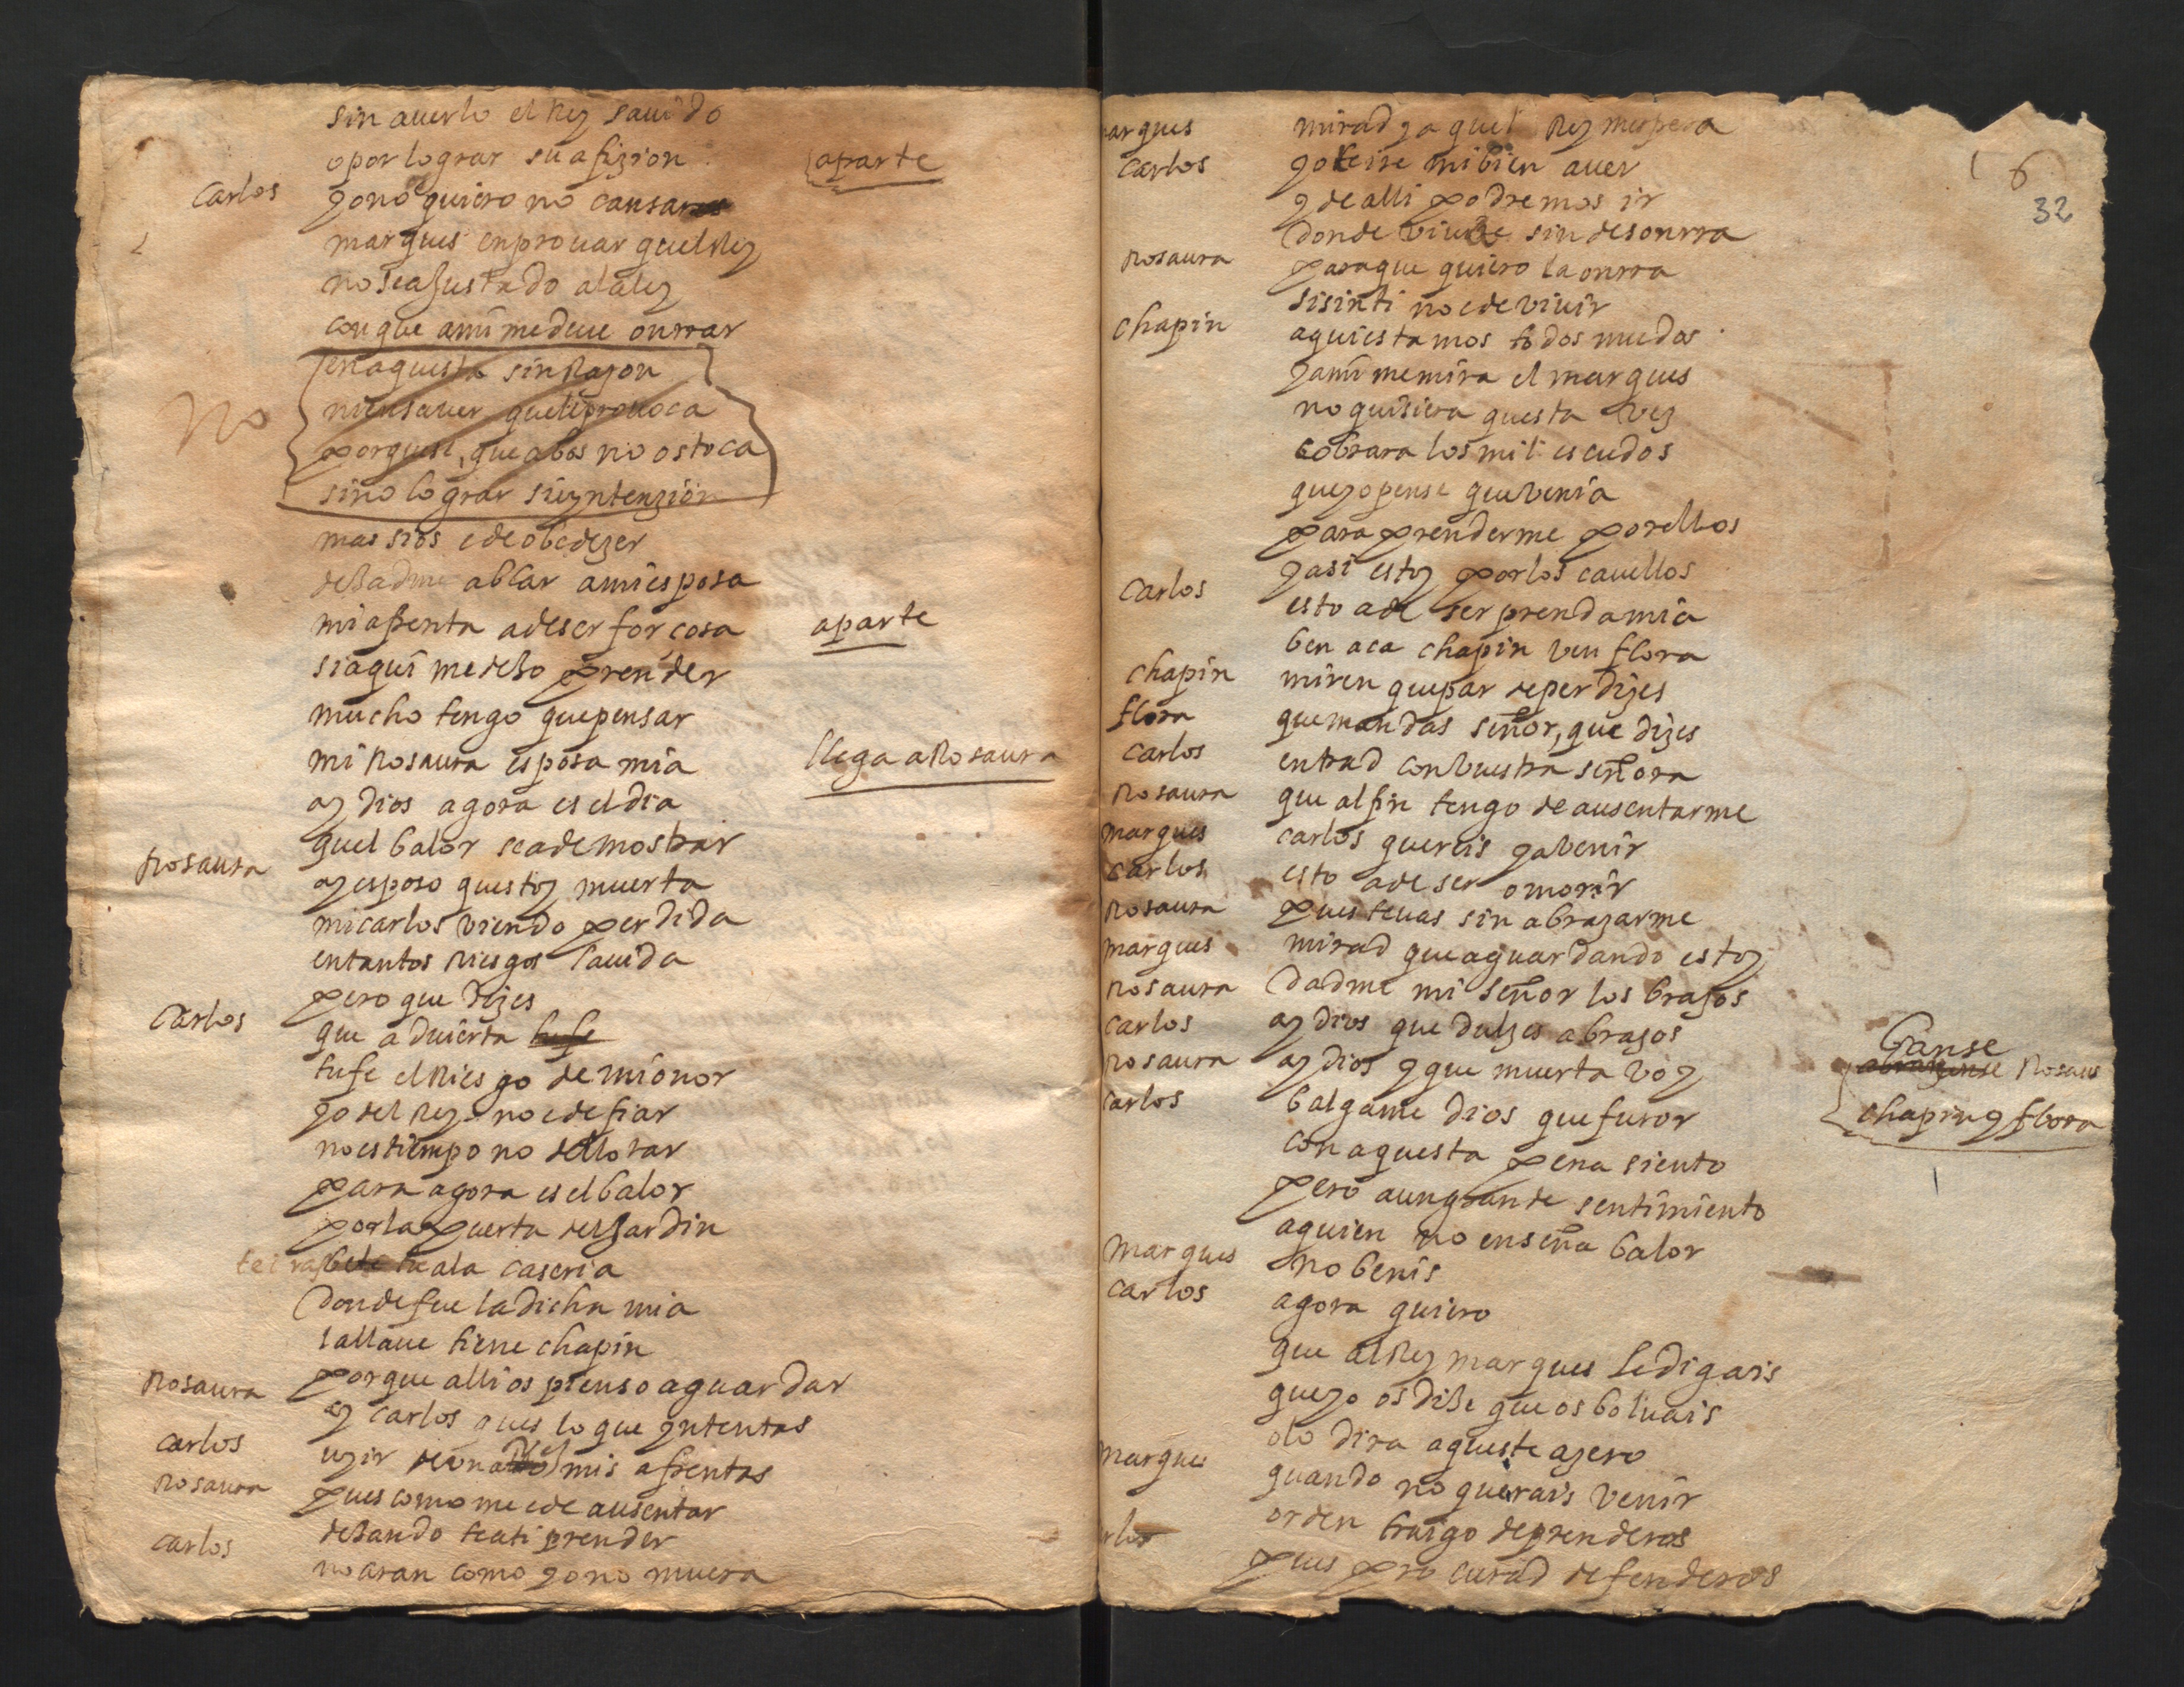 sin auerlo el Rey sauido
o por lograr su afizion
aparte
Carlos yo no quiero no cansar
marques en prouar quel Rey
no sea justado a la ley
con que a mi me deue onrrar
en aquesta sin Razon
no
ni en sauer que le prouoca
porquese, que a bos no os toca
sino lograr su yntenzion
mas si os e de obedezer
dexadme ablar a mi esposa
mi afrenta a de ser forçosa aparte
si aqui me dexo prender
mucho tengo que pensar
mi Rosaura esposa mia llega a Rosaura
ay dios agora es el dia
quel balor se a de mostrar
Rosaura ay esposo questoy muerta
mi carlos viendo perdida
en tantos Riesgos la uida
pero que dizes
Carlos que aduierta tu fe
tu fe el Riesgo de mi onor
yo del Rey no e de fiar
no es tiempo no de llorar
para agora es el balor
por la puerta del Jardin
te iras bete tu a la caseria
donde fue la dicha mia
la llaue tiene chapin
porque alli os pienso aguardar
Rosaura ay carlos ques lo que yntentas
Carlos uyir de una mis afrentas
Rosaura pues como me e de ausentar
dexando te a ti prender
Carlos no aran como yo no muera
6
32
arques mirad ya quel Rey mespera
Carlos yo te ire mi bien a uer
y de alli podremos ir
donde viua sin desonrra
Rosaura para que quiero la onrra
si sin ti no e de viuir
chapin aqui estamos todos mudos
y a mi me mira el marques
no quisiera questa vez
cobrara los mil escudos
que yo pense que venia
para prenderme por ellos
y asi estoy por los cauellos
Carlos esto a de ser prenda mia
ben aca chapin ven flora
chapin miren que par de perdizes
flora que mandas señor, que dizes
Carlos entrad con vuestra señora
Rosaura que al fin tengo de ausentarme
marques carlos quereis ya venir
Carlos esto a de ser o morir
Rosaura pues te uas sin abrazarme
marques mirad que aguardando estoy
Rosaura dadme mi señor los brazos
Carlos ay dios que dulzes abrazos
Rosaura ay dios y que muerta voy
banse
abrazanse Rosaura
chapin y flora
Carlos balgame dios que furor
con aquesta pena siento
pero a un grande sentimiento
a quien no enseña balor
Marques no benis
Carlos agora quiero
que al Rey marques le digais
que yo os dixe que os boluais
o lo dira aqueste azero
Marques quando no querais venir
orden traigo de prenderos
rlos pues procurad defenderos